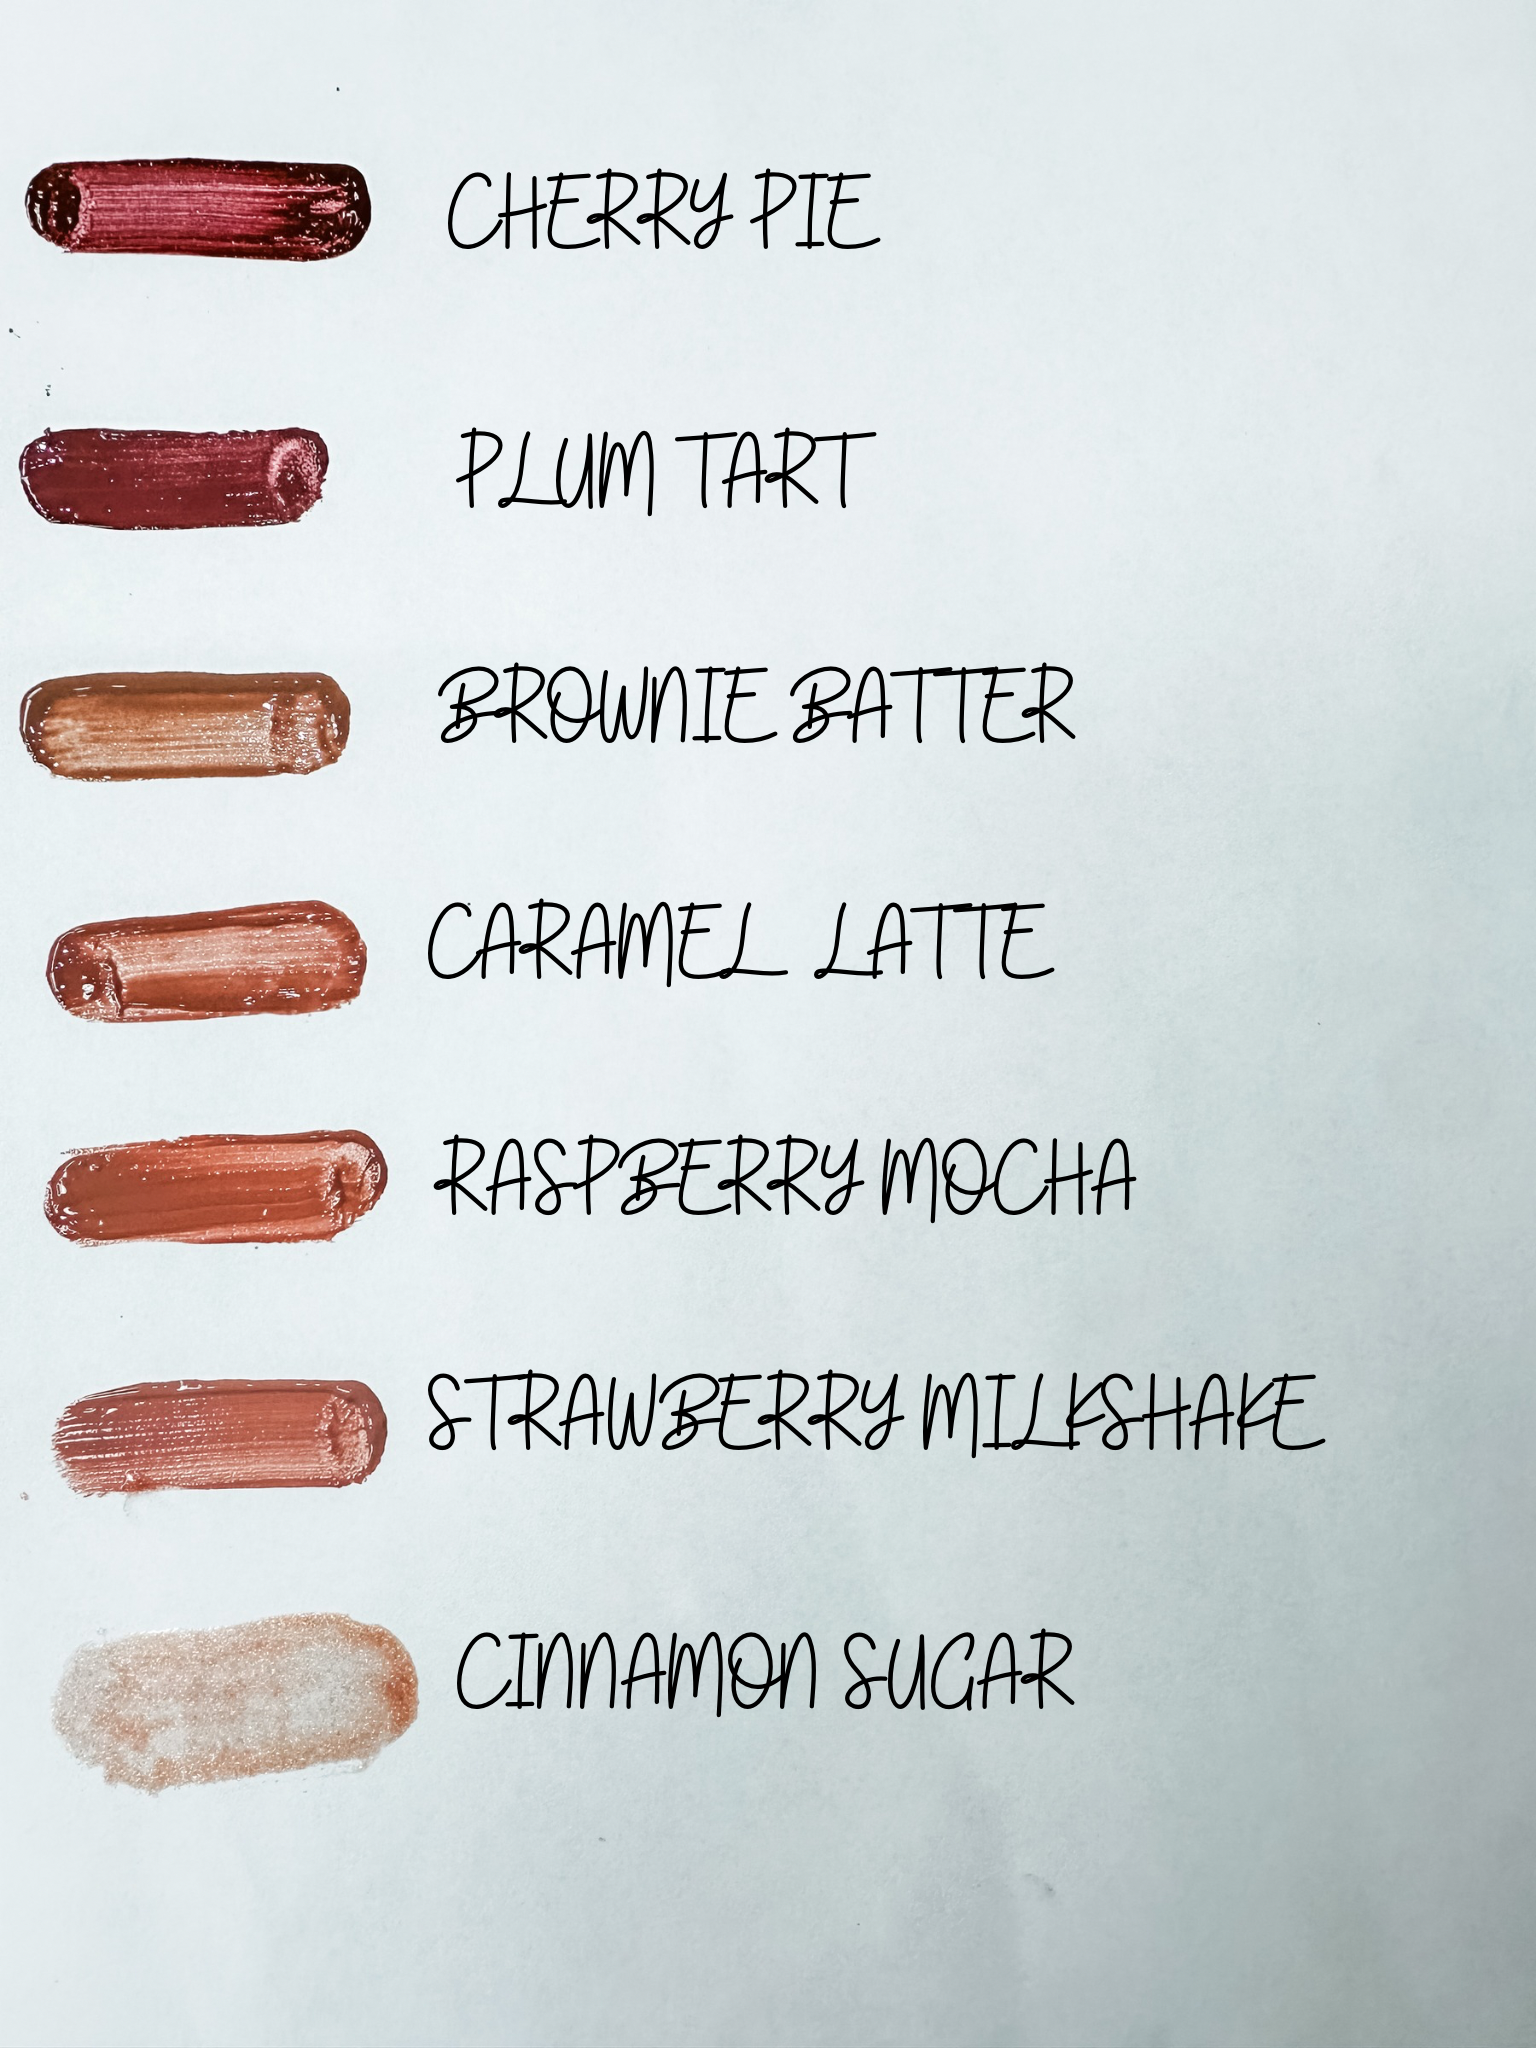 CHERRY PIE
PLUM TART
BROWNIE BATTER
CARAMEL LATTE
RASPBERRY MOCHA
STRAWBERRY MILKSHAKE
CINNAMON SUGAR